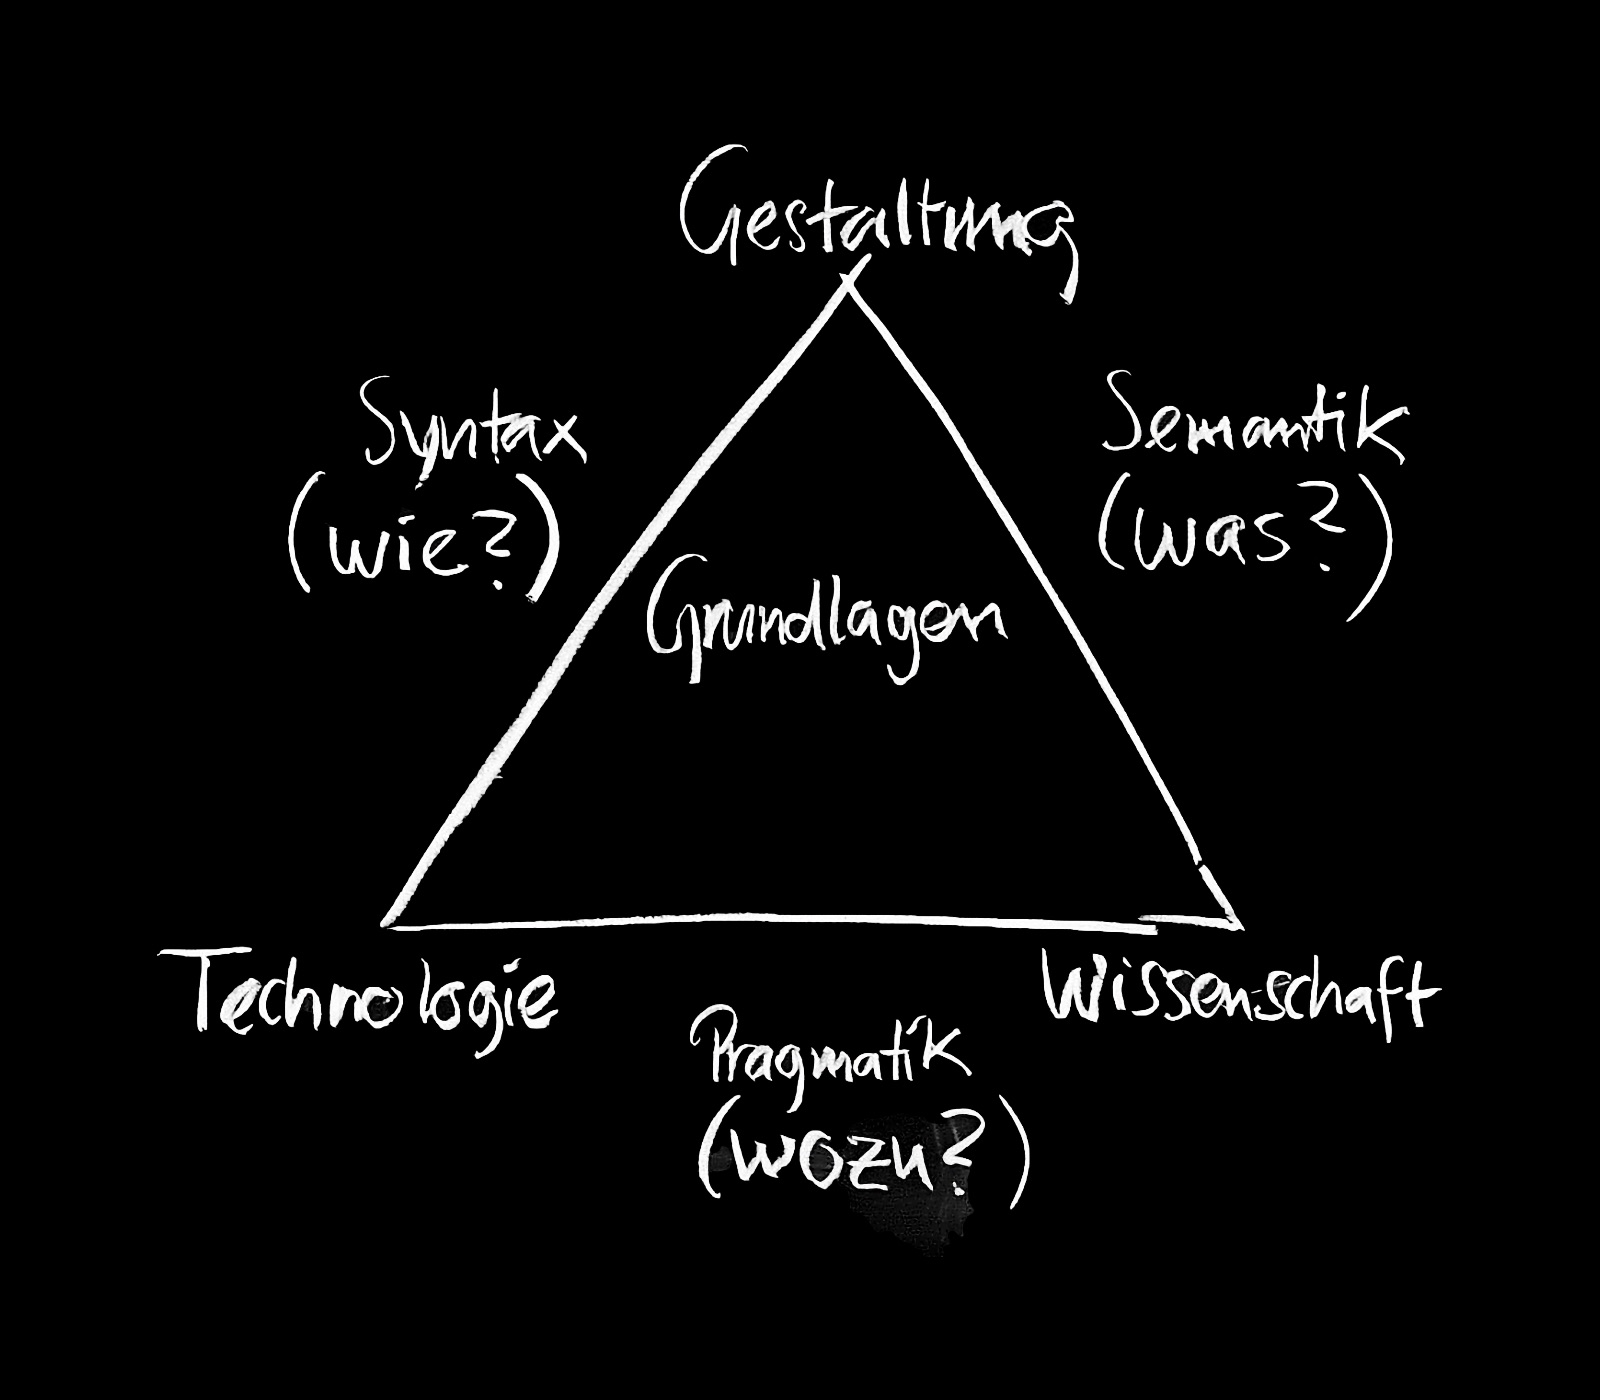 Gestaltung
Syntax
(wie?)
Semantik
(was?)
Grundlagen
Technologie
Wissenschaft
Pragmatik
(wozu?)